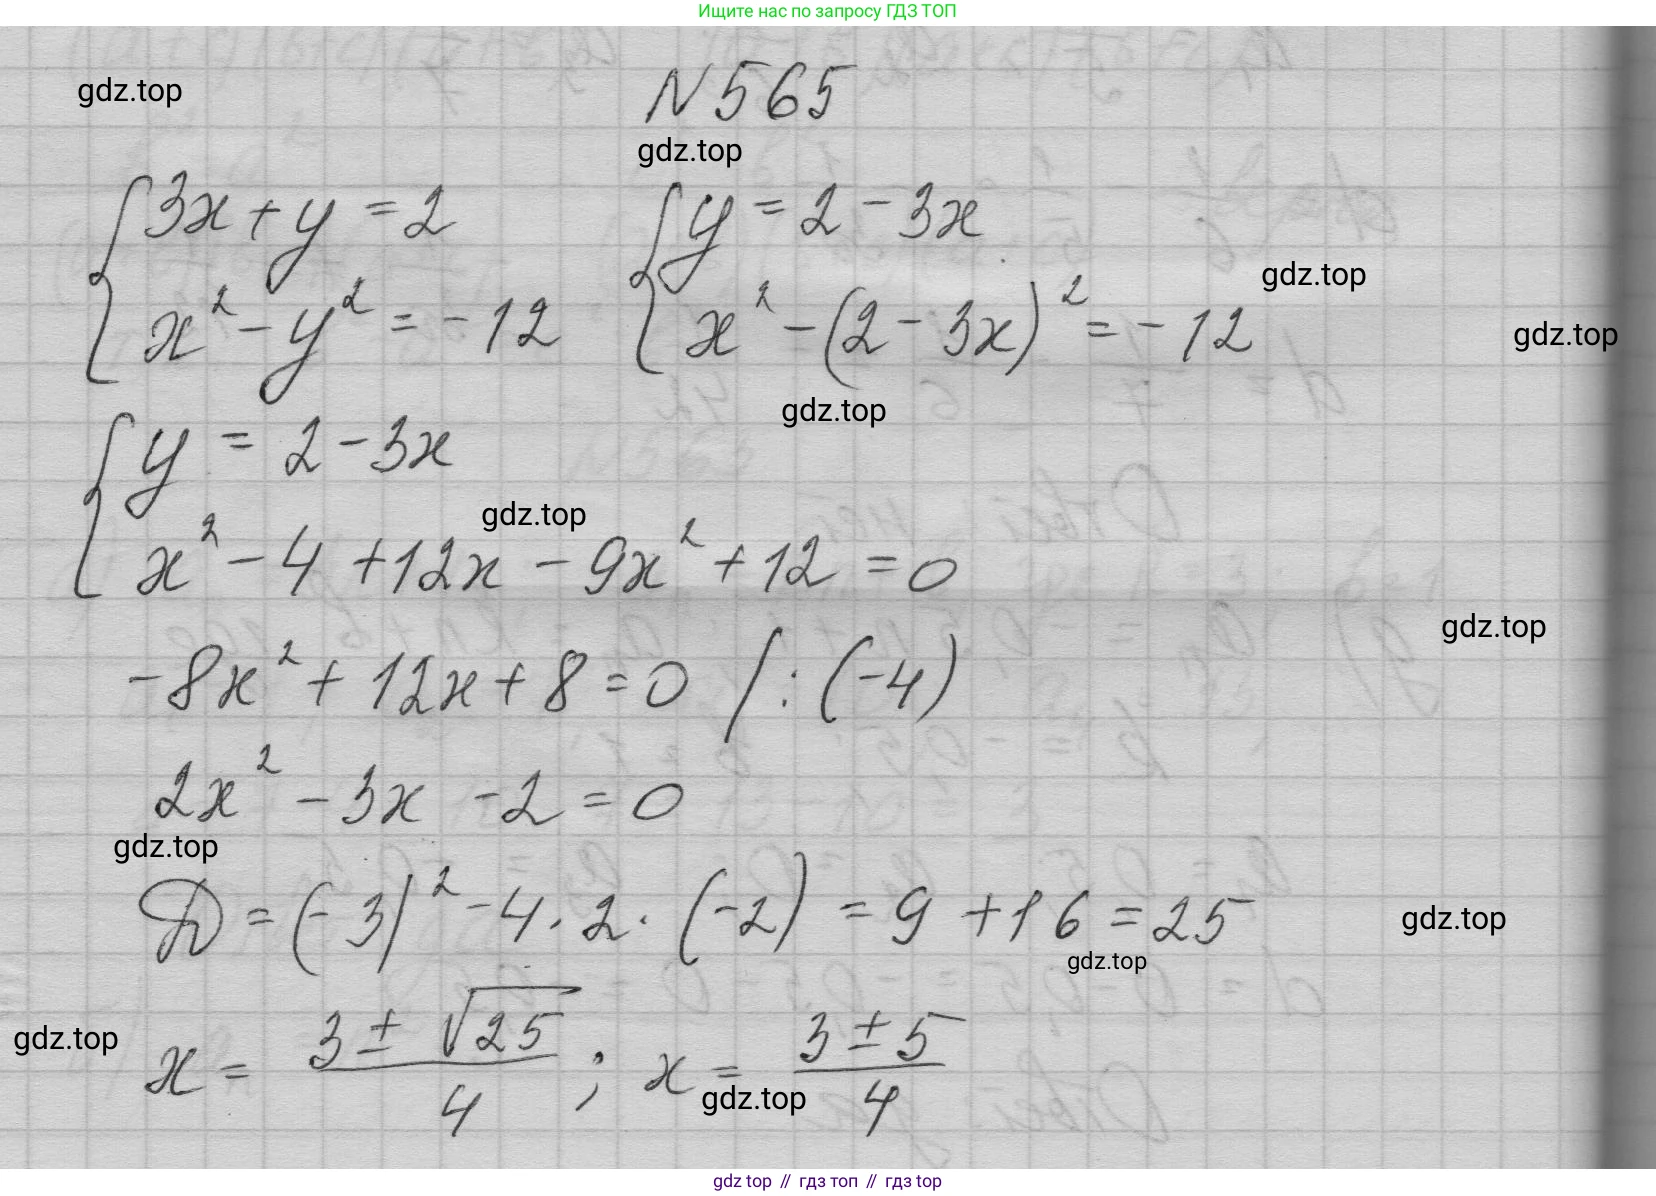 Ищите нас по запросу ГДЗ ТОП
gdz.top
N 565
gdz.top
{ 3x + y = 2   { y = 2 - 3x
gdz.top
x² - y² = -12   x² - (2 - 3x)² = -12
gdz.top
gdz.top
{ y = 2 - 3x
gdz.top
x² - 4 + 12x - 9x² + 12 = 0
gdz.top
-8x² + 12x + 8 = 0 / : (-4)
2x² - 3x - 2 = 0
gdz.top
D = (-3)² - 4 · 2 · (-2) = 9 + 16 = 25
gdz.top
gdz.top
gdz.top
x = (3 ± √25)/4 ; x = (3 ± 5)/4
gdz.top
gdz top // гдз топ // gdz top